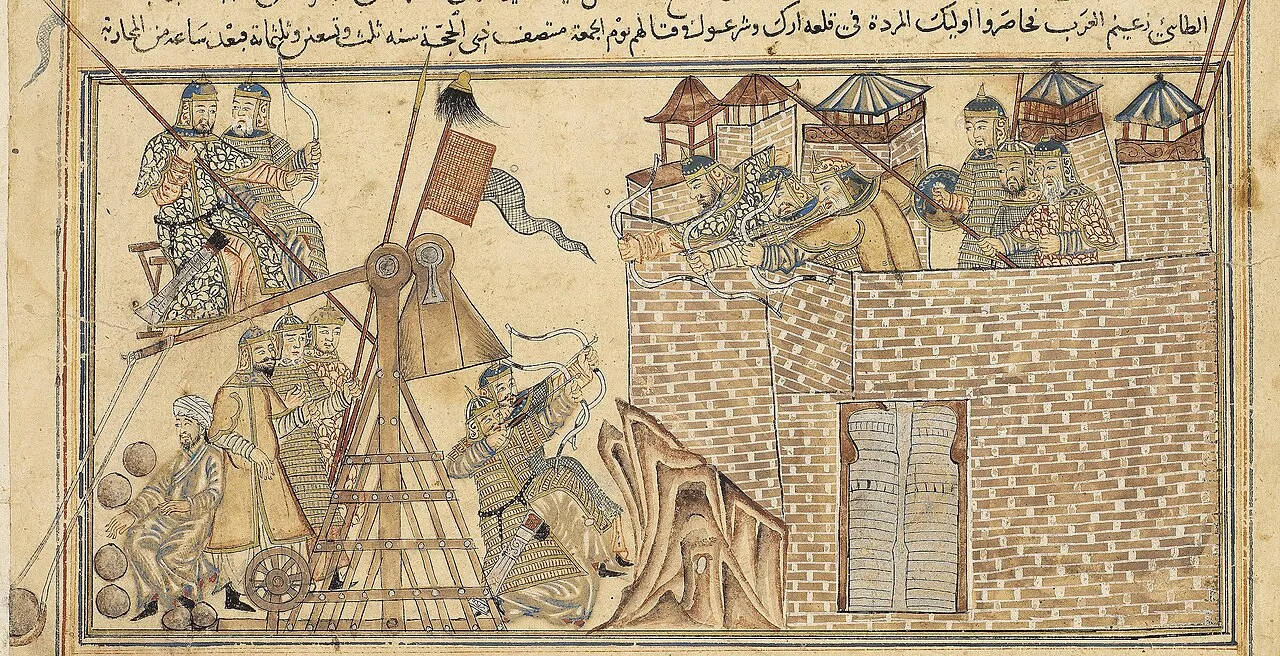 الطائي زعيم العرب فحاصروا اوليك المردة في قلعه ارك وشرعوا في قتالهم يوم الجمعة منتصف ذي الحجة سنه ثلث وتسعين وثلثمائة فبعد ساعة من المحاربة